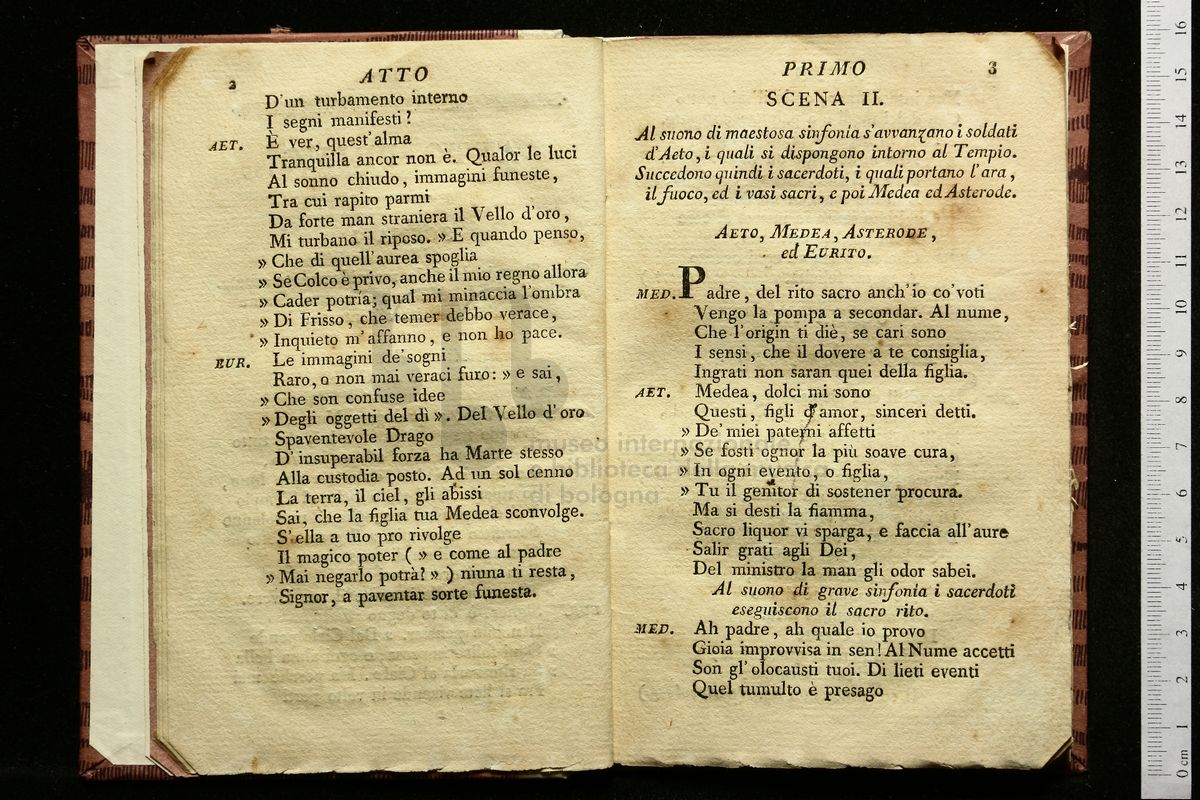 2
ATTO
D'un turbamento interno
I segni manifesti?
AET. È ver, quest'alma
Tranquilla ancor non è. Qualor le luci
Al sonno chiudo, immagini funeste,
Tra cui rapito parmi
Da forte man straniera il Vello d'oro,
Mi turbano il riposo. » E quando penso,
» Che di quell'aurea spoglia
» Se Colco è privo, anche il mio regno allora
» Cader potria; qual mi minaccia l'ombra
» Di Frisso, che temer debbo verace,
» Inquieto m'affanno, e non ho pace.
EUR. Le immagini de'sogni
Raro, o non mai veraci furo: » e sai,
» Che son confuse idee
» Degli oggetti del dì ». Del Vello d'oro
Spaventevole Drago
D'insuperabil forza ha Marte stesso
Alla custodia posto. Ad un sol cenno
La terra, il ciel, gli abissi
Sai, che la figlia tua Medea sconvolge.
S'ella a tuo pro rivolge
Il magico poter ( » e come al padre
» Mai negarlo potrà? » ) niuna ti resta,
Signor, a paventar sorte funesta.
PRIMO
3
SCENA II.
Al suono di maestosa sinfonia s'avvanzano i soldati
d'Aeto, i quali si dispongono intorno al Tempio.
Succedono quindi i sacerdoti, i quali portano l'ara,
il fuoco, ed i vasi sacri, e poi Medea ed Asterode.
AETO, MEDEA, ASTERODE,
ed EURITO.
MED. Padre, del rito sacro anch'io co'voti
Vengo la pompa a secondar. Al nume,
Che l'origin ti diè, se cari sono
I sensi, che il dovere a te consiglia,
Ingrati non saran quei della figlia.
AET. Medea, dolci mi sono
Questi, figli d'amor, sinceri detti.
» De'miei paterni affetti
» Se fosti ognor la più soave cura,
» In ogni evento, o figlia,
» Tu il genitor di sostener procura.
Ma si desti la fiamma,
Sacro liquor vi sparga, e faccia all'aure
Salir grati agli Dei,
Del ministro la man gli odor sabei.
Al suono di grave sinfonia i sacerdoti
eseguiscono il sacro rito.
MED. Ah padre, ah quale io provo
Gioia improvvisa in sen! Al Nume accetti
Son gl'olocausti tuoi. Di lieti eventi
Quel tumulto è presago
museo internazionale
biblioteca
di bologna
0 cm 1 2 3 4 5 6 7 8 9 10 11 12 13 14 15 16